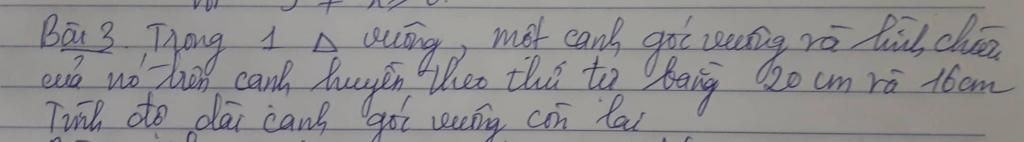 Bài 3. Trong 1 Δ vuông, một cạnh góc vuông và hình chiếu
của nó trên cạnh huyền theo thứ tự bằng 20 cm và 16cm
Tính độ dài cạnh góc vuông còn lại